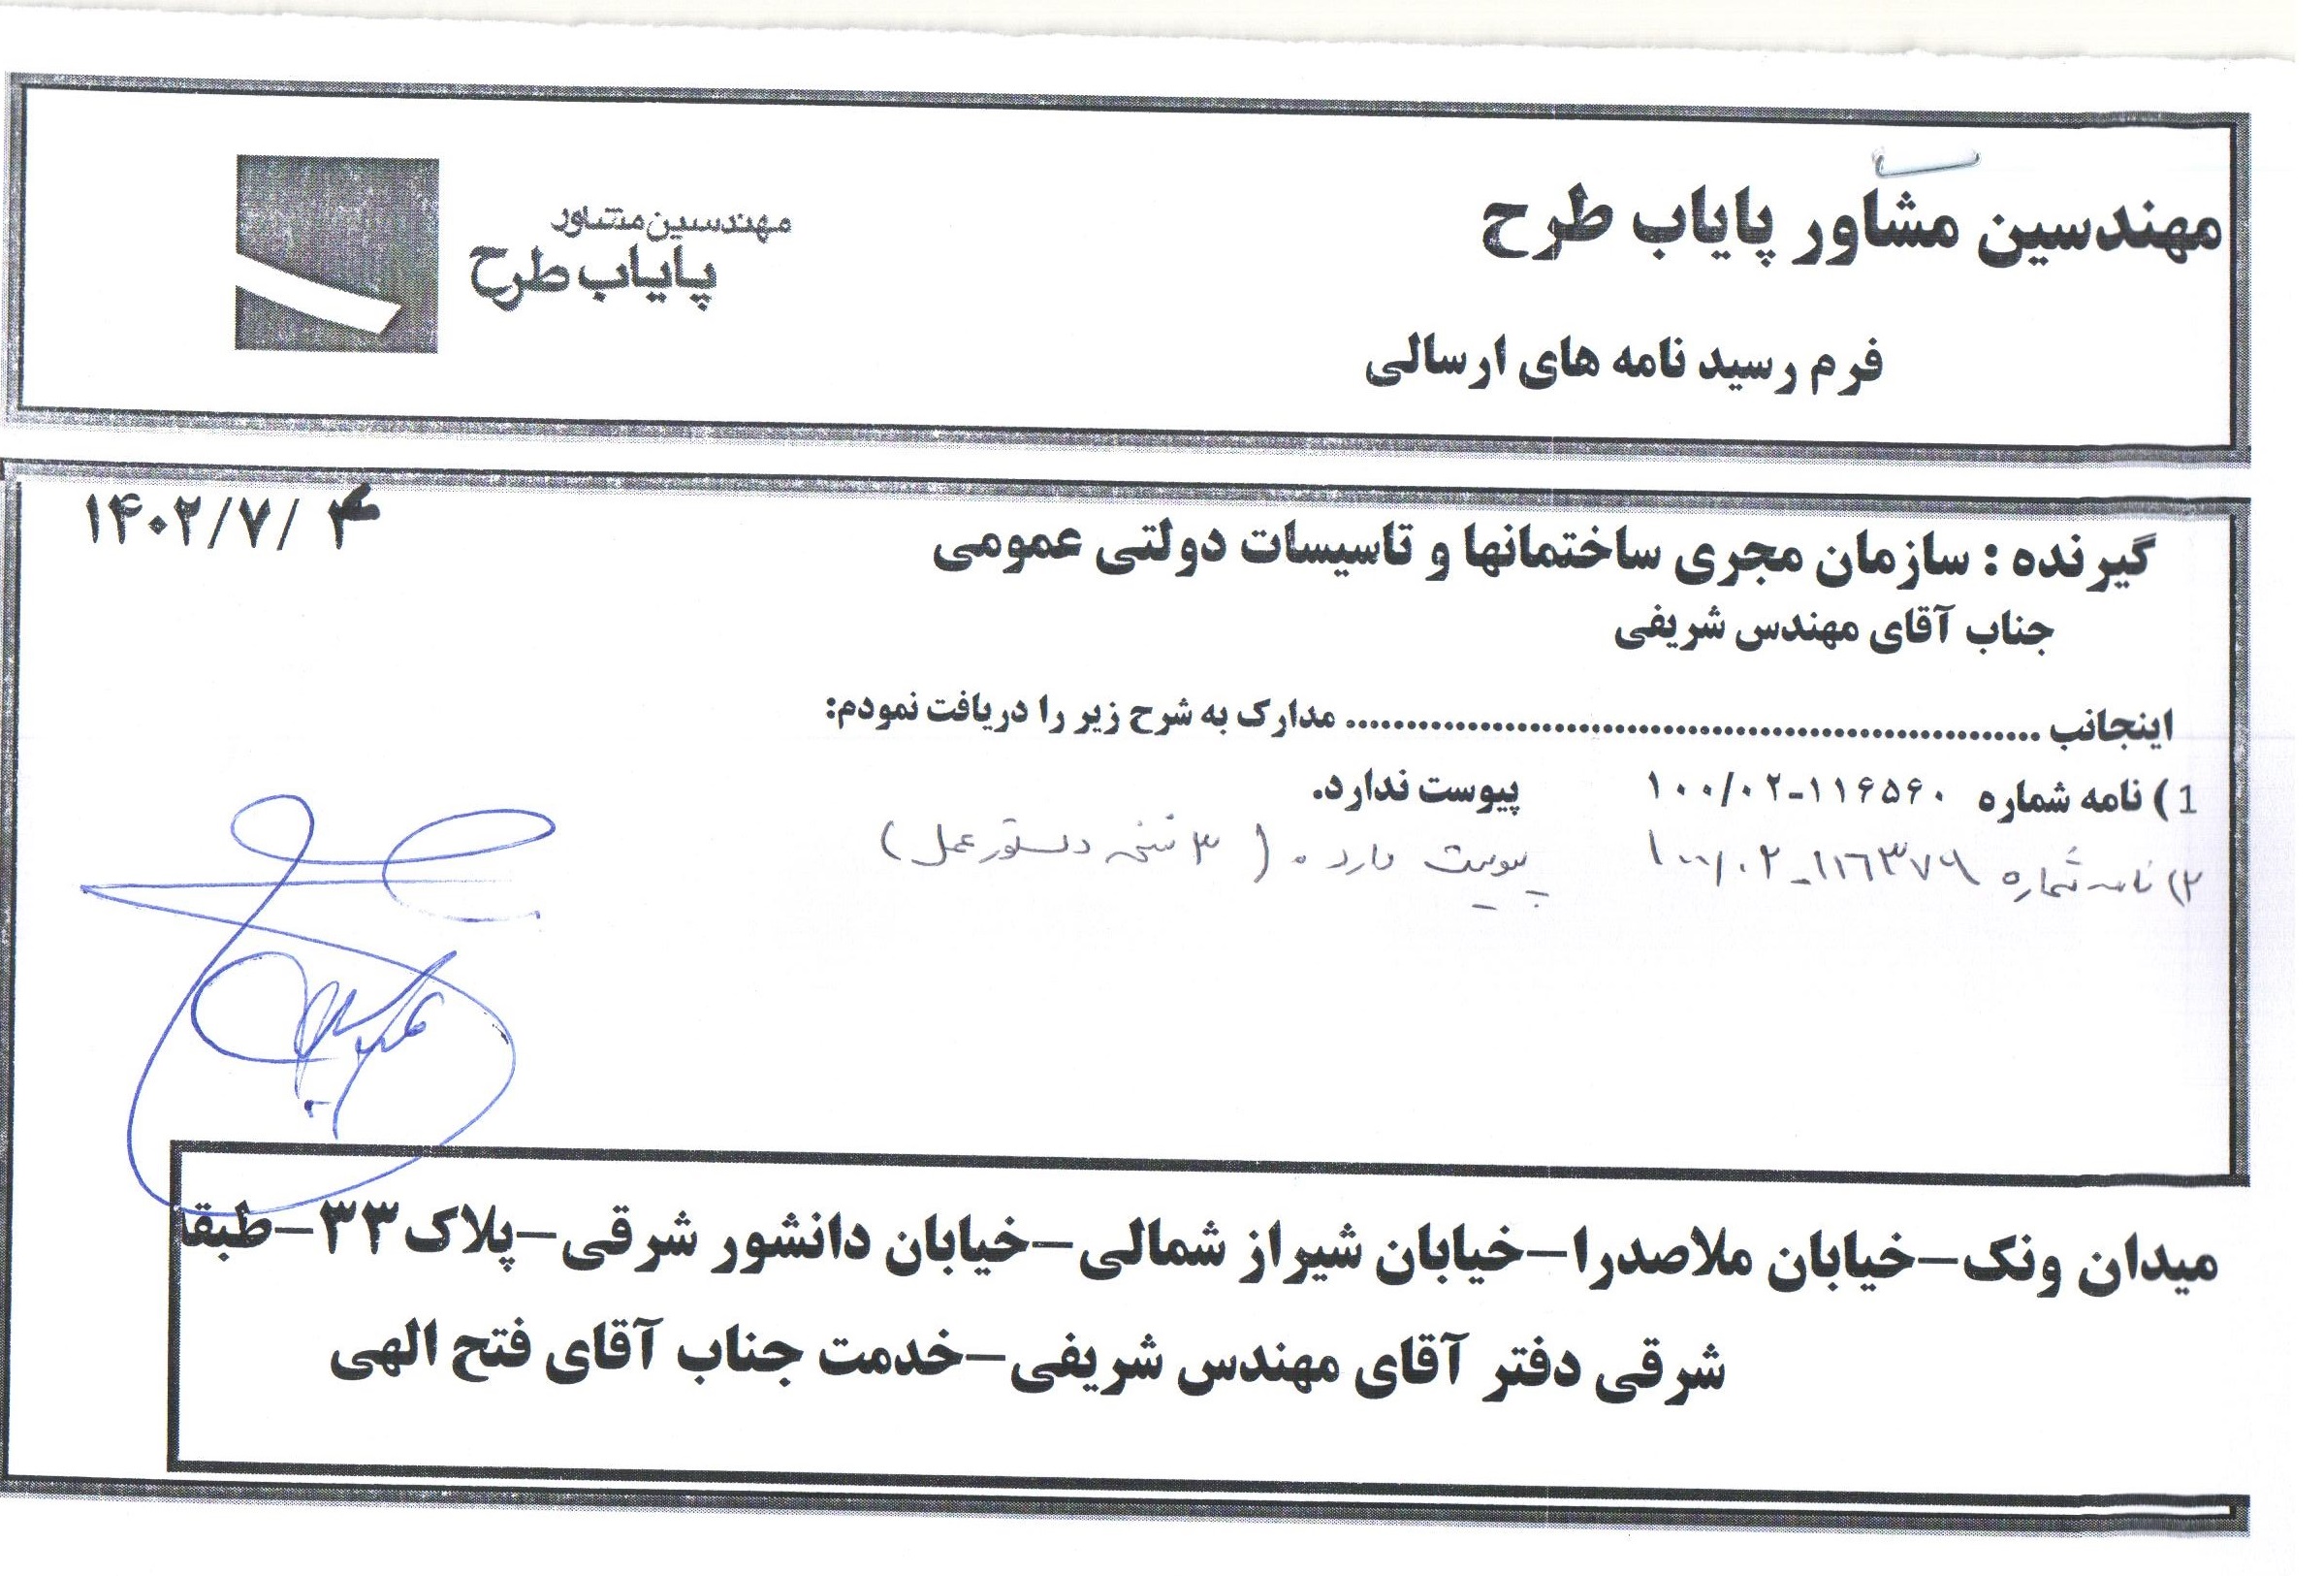 مهندسین مشاور پایاب طرح
مهندسین مشاور
پایاب طرح
فرم رسید نامه های ارسالی
۱۴۰۲/۷/ ۴
گیرنده : سازمان مجری ساختمانها و تاسیسات دولتی عمومی
جناب آقای مهندس شریفی
اینجانب ........................................................ مدارک به شرح زیر را دریافت نمودم:
1) نامه شماره ۱۰۰/۰۲-۱۱۶۵۶۰ پیوست ندارد.
۲) نامه شماره ۱۰۰/۰۲-۱۱۶۳۷۹ پیوست دارد. (۳ نسخه دستورعمل)
میدان ونک-خیابان ملاصدرا-خیابان شیراز شمالی-خیابان دانشور شرقی-پلاک۳۳-طبقه
شرقی دفتر آقای مهندس شریفی-خدمت جناب آقای فتح الهی